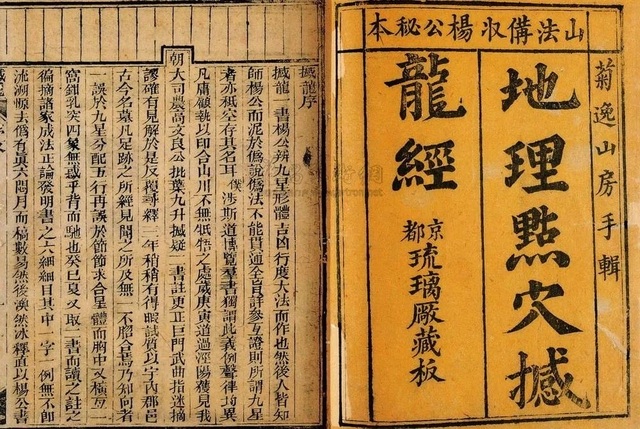 菊逸山房手輯
山法備収楊公秘本
地理點穴撼
龍經
京都琉璃厰藏板
撼龍序
撼龍一書楊公辨九星形體吉凶行度大法而作也然後人皆知
師楊公而泥於僞說僞法不能貫通全旨詳參互證則所謂九星
者亦秖空存其名耳僕涉斯道博覽羣書獨謂此義例聲律均異
凡庸顧執以印合山川不無牴牾之處歲庚寅道過涇陽獲見我
朝大司農高文良公批葉九升撼疑二書註更正巨門武曲指迷摘
謬確有見解於是反覆尋繹三年稍稍有得暇試質以宇內郡邑
古今名墓凡足跡之所經見聞之所及無一不脗合焉乃知向者
一誤於九星分配五行再誤於節節求合星體而胸中又橫亙一
窩鉗乳突四象無惑乎背而馳也癸巳夏又取二書而讀之註之
徧摘諸家成法正論發明書之大綱細目其中一字一例無不卽
流溯源去僞存眞六閱月而稿數易然後渙然冰釋直以楊公書